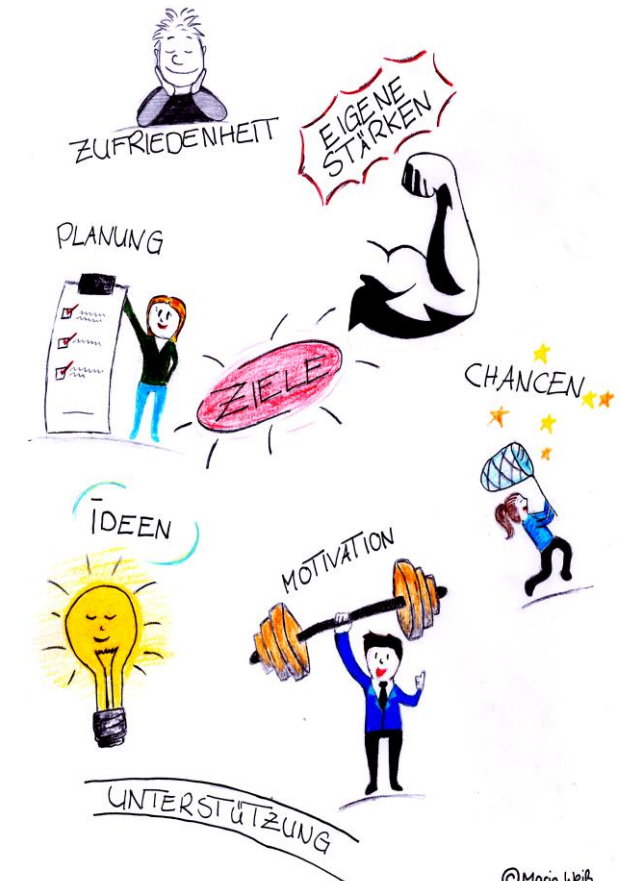 ZUFRIEDENHEIT
EIGENE
STÄRKEN
PLANUNG
ZIELE
CHANCEN
IDEEN
MOTIVATION
UNTERSTÜTZUNG
© Maria Weiß